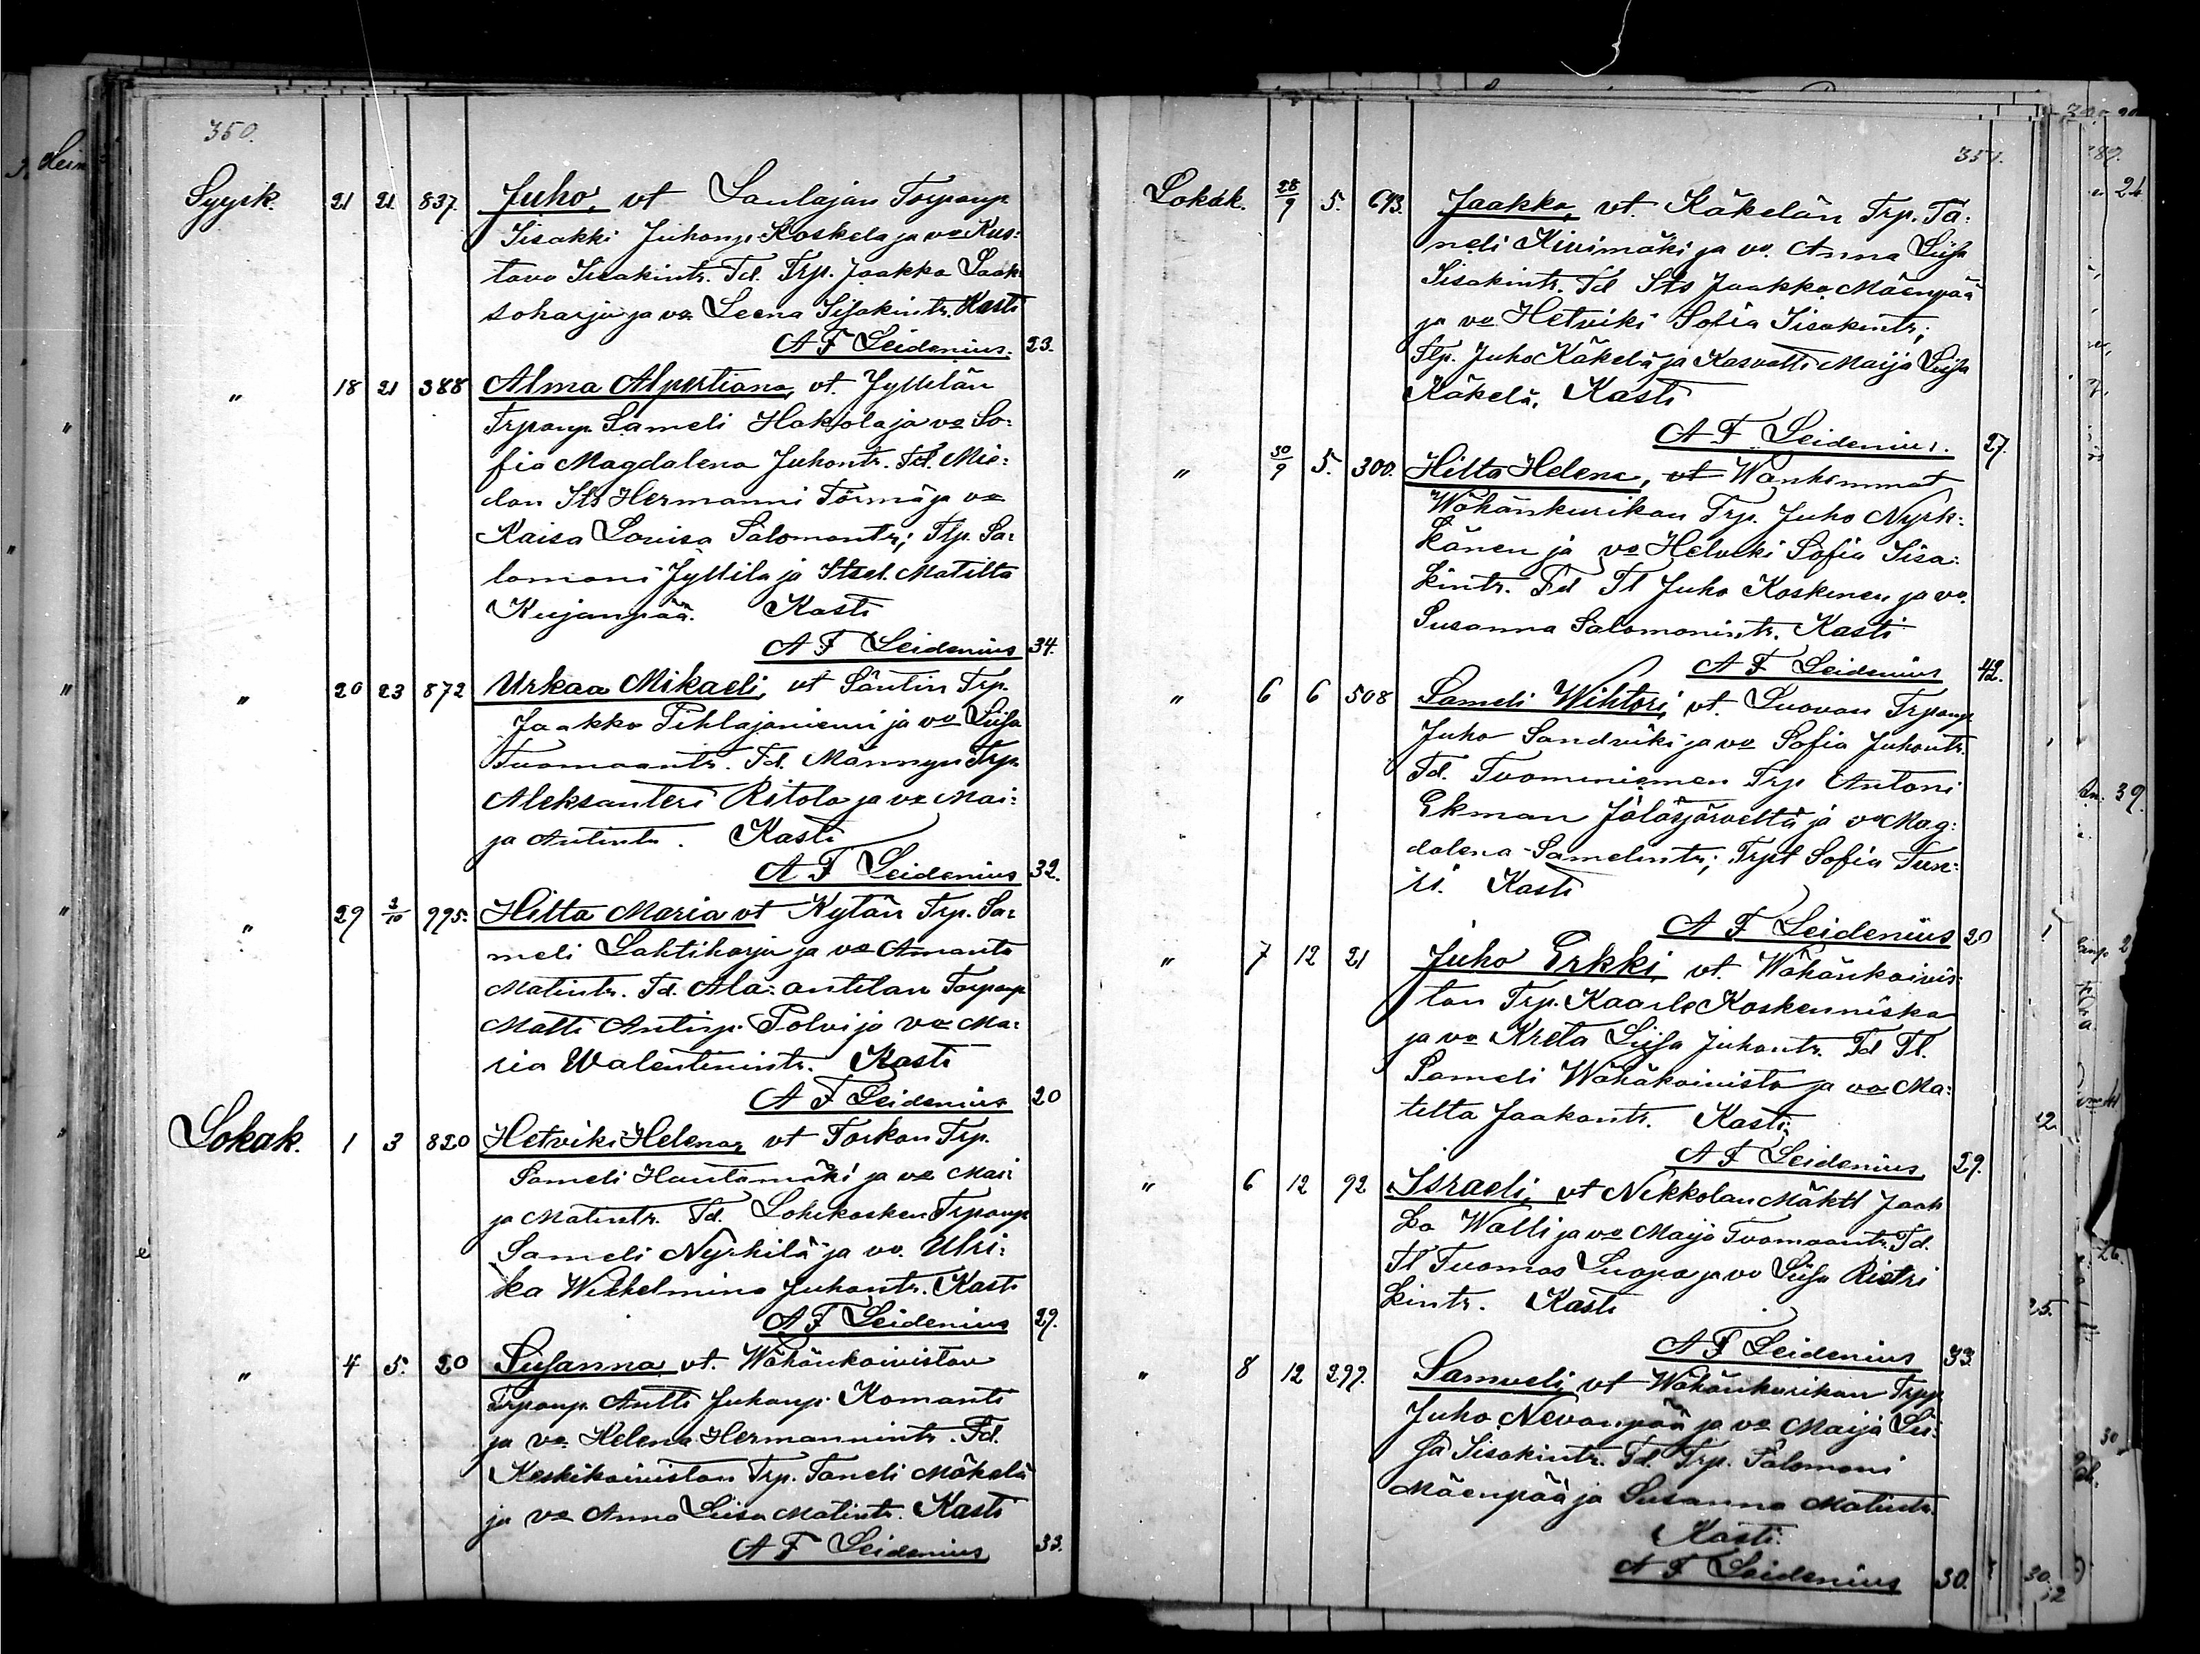 350.
Syysk. 21 21 837. Juho, vt Laulajan Torpanp
Iisakki Juhonp. Koskela ja vo Kus:
tava Iisakintr. Td. Trp. Jaakko Laak
soharju ja vo Leena Iisakintr. Kasti
A F Leidenius. 23.
" 18 21 388 Alma Alpertiana, vt. Jyllilän
Trpanp. Sameli Hakola ja vo So:
fia Magdalena Juhontr. Td.
Its Hermanni Törmä ja vo
Kaisa Lovisa Salomontr; Tlp. Sa:
lomoni Jyllilä ja Itsel. Matilta
Kujanpää. Kasti
A F Leidenius 34.
" 20 23 872 Urkaa Mikaeli, vt Säntin Trp.
Jaakko Pihlajaniemi ja vo Liisa
Tuomaantr. Td. Männyn Trp.
Aleksanteri Ritola ja vo Mai:
ja Antintr. Kasti
A F Leidenius 32.
" 29 2/10 995. Hilta Maria vt Kytän Trp. Sa:
meli Lahtiharju ja vo Amanta
Matintr. Td. Ala-antilan Torpanp
Matti Antinp. Polvi ja vo Ma:
ria Walentinintr. Kasti
A F Leidenius 20
Lokak. 1 3 820 Hetviki Helena, vt Torkon Trp.
Sameli Hautamäki ja vo Mai:
ja Matintr. Td. Lohikosken Trpanp
Sameli Nyrhilä ja vo. Ulri:
ka Wilhelmina Juhontr. Kasti
A F Leidenius 29.
" 4 5. 20 Susanna, vt. Wähänkoiviston
Trpanp. Antti Juhanp. Komanti
ja vo. Helena Hermannintr. Td.
Keskikoiviston Trp. Taneli Mäkelä
ja vo Anna Liisa Matintr. Kasti
A F Leidenius 33.
351.
Lokak. 28/9 5. 693. Jaakko, vt. Käkelän Trp. Ta:
neli Kivimäki ja vo. Anna Liisa
Iisakintr. Td Its Jaakko Mäenpää
ja vo Hetviki Sofia Iisakintr;
Tlp. Juho Käkelä ja Kasvatti Maija Liisa
Käkelä. Kasti
A F Leidenius. 27.
" 30/9 5. 300. Hilta Helena, vt Wanhemmat
Wähänkurikan Trp. Juho Nyrk:
känen ja vo Helviki Sofia Iisa:
kintr. Td Tl Juho Koskinen ja vo.
Susanna Salomonintr. Kasti
A F Leidenius 42.
" 6 6 508 Sameli Wihtori, vt. Luovan Trpanp
Juho Sandviki ja vo Sofia Juhontr.
Td. Tuominiemen Trp Antoni
Ekman Jalasjärveltä ja vo Mag:
dalena Samelintr; Trpt Sofia
Kasti
A F Leidenius 20
" 7 12 21 Juho Erkki, vt. Wähänkoivis:
ton Trp. Kaarlo Koskenniska
ja vo Kreta Liisa Juhontr. Td Tl.
Sameli Wähäkoivisto ja vo Ma:
tilta Jaakontr. Kasti
A F Leidenius 29.
" 6 12 92 Israeli, vt Nikkolan Mäktl Jaak
ko Walli ja vo Maija Tuomaantr. Td.
Tl Tuomas Luopa ja vo Liisa Risti
kintr. Kasti
A F Leidenius 33.
" 8 12 297. Samueli, vt Wähänkurikan Trpp
Juho Nevanpää ja vo Maija Lii:
sa Iisakintr. Td. Trp. Salomoni
Mäenpää ja Susanna Matintr.
Kasti.
A F Leidenius 30.